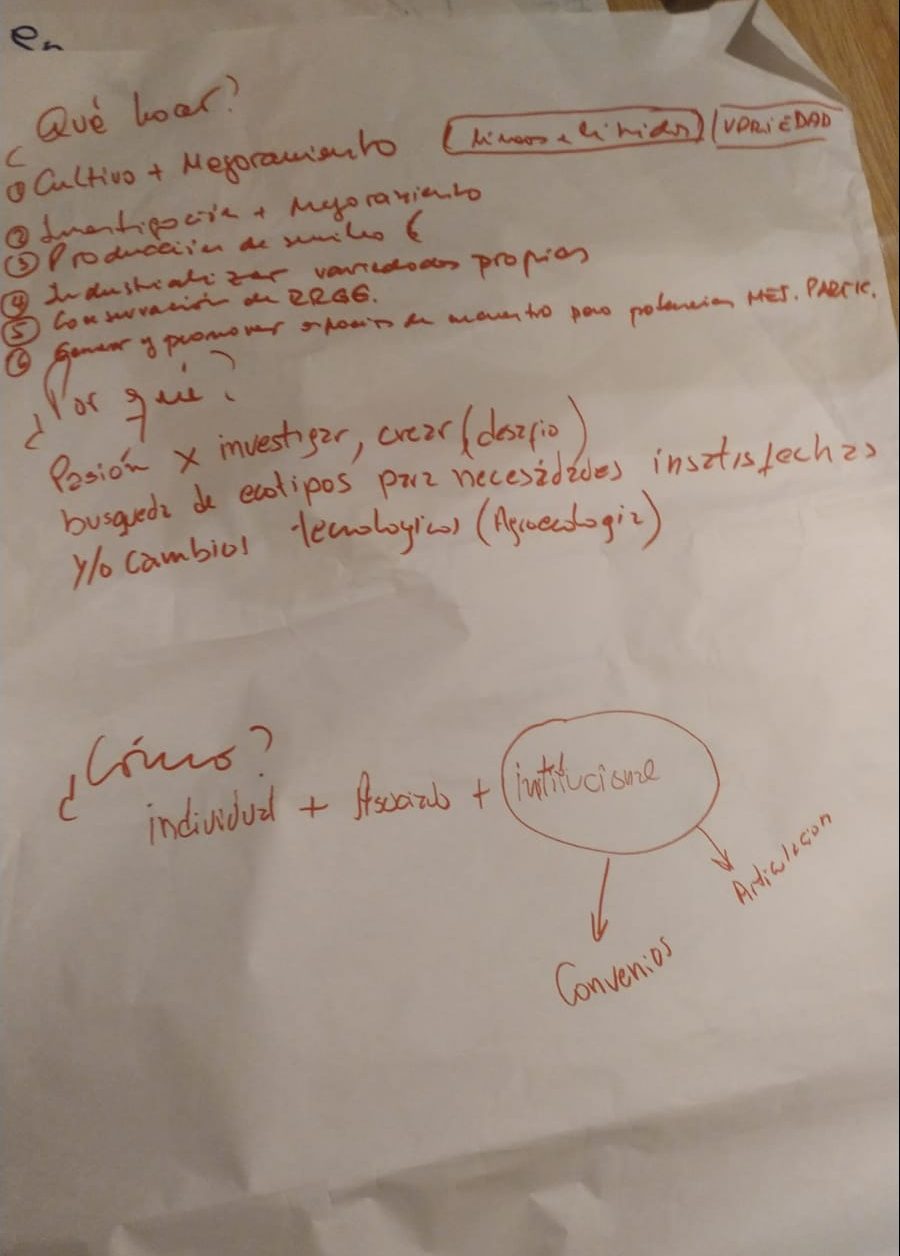 en
¿Qué hacer?
① Cultivo + Mejoramiento
VARIEDAD
② Investigación + Mejoramiento
③ Producción de semilla
④ Industrializar variedades propias
⑤ Conservación de RRGG.
⑥ Generar y promover espacios de encuentro para potenciar MEJ. PARTIC.
¿Por qué?
Pasión x investigar, crear (desafio)
busqueda de ecotipos para necesidades insatisfechas
y/o cambios tecnologicos (Agroecologia)
¿Cómo?
individual + Asociado +
Articulacion
Convenios